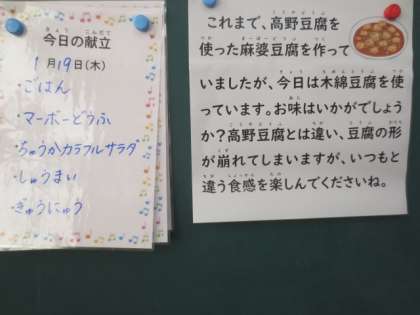 今日の献立
1月19日(木)
ごはん
・マーボーどうふ
・ちゅうかカラフルサラダ
・しゅうまい
・ぎゅうにゅう
これまで、高野豆腐を
使った麻婆豆腐を作って
いましたが、今日は木綿豆腐を使
っています。お味はいかがでしょう
か？高野豆腐とは違い、豆腐の形
が崩れてしまいますが、いつもと
違う食感を楽しんでくださいね。